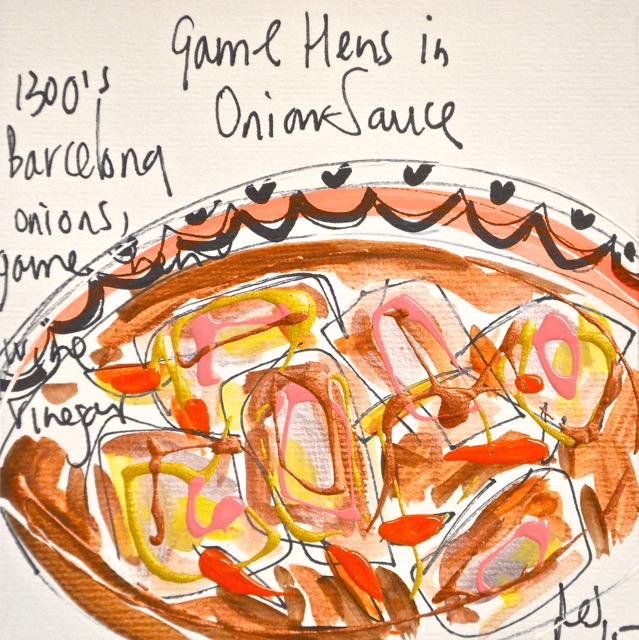 Game Hens in
Onion Sauce
1300's
Barcelona
onions,
game hens
wine
vinegar